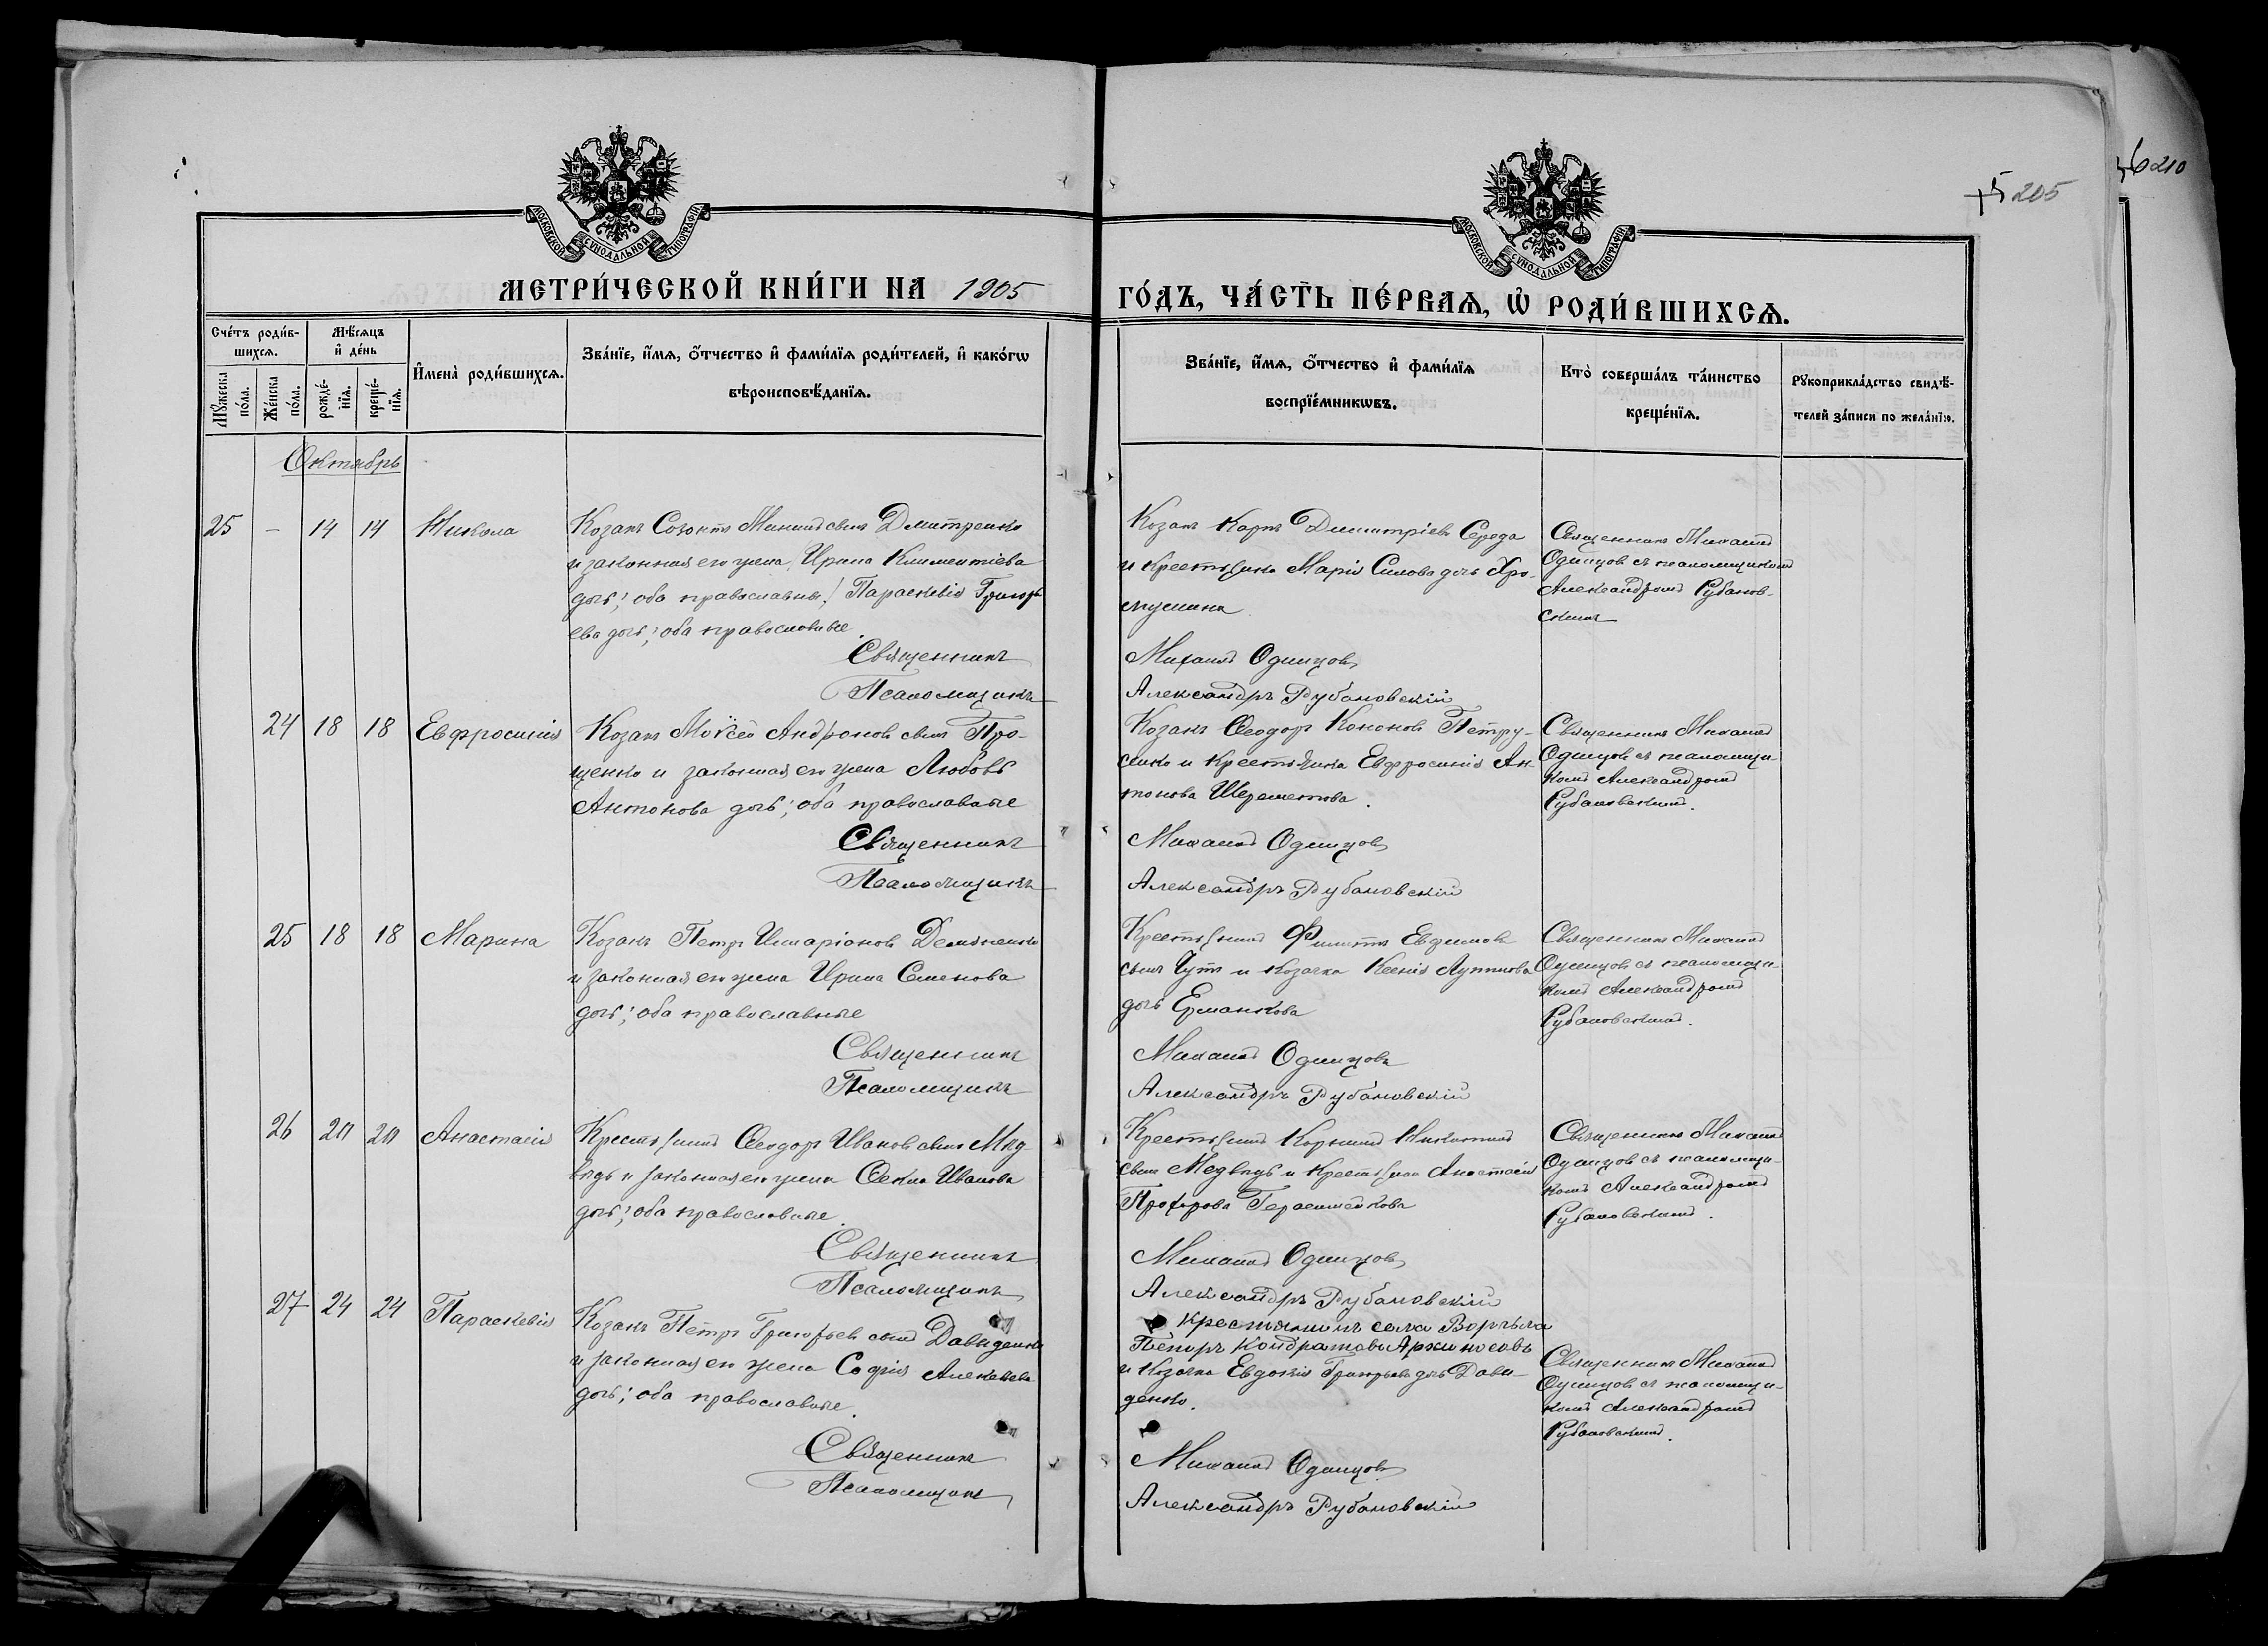 +5 205
36 210
МОСКОВСКОЙ СѴНОДАЛЬНОЙ ТИПОГРАФІИ
МОСКОВСКОЙ СѴНОДАЛЬНОЙ ТИПОГРАФІИ
МЕТРИ́ЧЕСКОЙ КНИ́ГИ НА 1905 ГО́ДЪ, ЧА́СТЬ ПЕ́РВАѦ, Ѡ҆ РОДИ́ВШИХСѦ.
Сче́тъ роди́в-
шихсѧ.
Мѣ́сѧцъ
и҆ де́нь
Мꙋ́жеска
по́ла.
Же́нска
по́ла.
рожде́-
нїѧ.
креще́-
нїѧ.
И҆мена̀ роди́вшихсѧ.
Зва́нїе, и҆́мѧ, ѻ҆́тчество и҆ фами́лїѧ роди́телей, и҆ како́гѡ
вѣроисповѣ́данїѧ.
Зва́нїе, и҆́мѧ, ѻ҆́тчество и҆ фами́лїѧ
воспрїе́мникѡвъ.
Кто̀ соверша́лъ та́инство
креще́нїѧ.
Рꙋкоприкла́дство свидѣ́-
телей за́писи по жела́нїю.
Октябрь
25 — 14 14 Никола
Козакъ Созонтъ Дмитренко
и законная его жена Ирина Климентіева
дочь; оба православны. Параскевія Григорь
ева дочь; оба православные.
Священникъ
Псаломщикъ
Козакъ Карпъ Димитріевъ Середа
и крестьянка Марія Силова дочь Хро-
мушина
Михаилъ Одинцовъ
Александръ Рубановскій
Священникъ Михаилъ
Одинцовъ съ псаломщикомъ
Александромъ Рубанов-
скимъ
24 18 18 Евфросинія
Козакъ Моѵсей Андроновъ сынъ Про-
ценко и законная его жена Любовь
Антонова дочь; оба православные
Священникъ
Псаломщикъ
Козакъ Ѳеодоръ Кононовъ Петру-
сенко и крестьянка Евфросинія Ан-
тонова Шереметова.
Михаилъ Одинцовъ
Александръ Рубановскій
Священникъ Михаилъ
Одинцовъ съ псаломщи-
комъ Александромъ
Рубановскимъ.
25 18 18 Марина
Козакъ Петръ Иларіоновъ Демьяненко
и законная его жена Ирина Семенова
дочь; оба православные
Священникъ
Псаломщикъ
Крестьянинъ Филиппъ Евфимовъ
сынъ Чутъ и козачка Ксенія Луппова
дочь Ермакова
Михаилъ Одинцовъ
Александръ Рубановскій
Священникъ Михаилъ
Одинцовъ съ псаломщи-
комъ Александромъ
Рубановскимъ.
26 20 20 Анастасія
Крестьянинъ Ѳеодоръ Ивановъ сынъ Мед-
вѣдь и законная его жена Ѳекла Иванова
дочь; оба православные.
Священникъ
Псаломщикъ
Крестьянинъ Корнилій
сынъ Медвѣдь и крестьянка Анастасія
Прохорова Герасименкова
Михаилъ Одинцовъ
Александръ Рубановскій
Священникъ Михаилъ
Одинцовъ съ псаломщи-
комъ Александромъ
Рубановскимъ.
27 24 24 Параскевія
Козакъ Петръ Григорьевъ сынъ Давиденко
и законная его жена Софія Алексѣева
дочь; оба православные.
Священникъ
Псаломщикъ
Крестьянинъ села Ворчьма
Петръ Кондратовъ Аржаносовъ
и козачка Евдокія Григорьева дочь Дави-
денко.
Михаилъ Одинцовъ
Александръ Рубановскій
Священникъ Михаилъ
Одинцовъ съ псаломщи-
комъ Александромъ
Рубановскимъ.